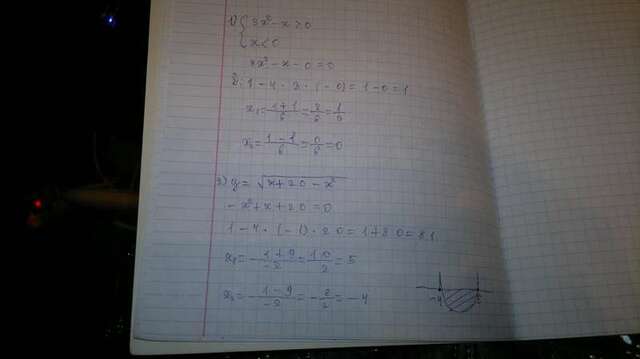 1) { 3x² - x > 0
x < 0
3x² - x - 0 = 0
D: 1 - 4 · 3 · (-0) = 1 - 0 = 1
x₁ = 1+1/6 = 2/6 = 1/3
x₂ = 1-1/6 = 0/6 = 0
3) y = √x+20-x²
-x² + x + 20 = 0
1 - 4 · (-1) · 20 = 1 + 80 = 81
x₁ = -1+9/-2 = 10/2 = 5
x₂ = -1-9/-2 = -8/2 = -4
-4 5